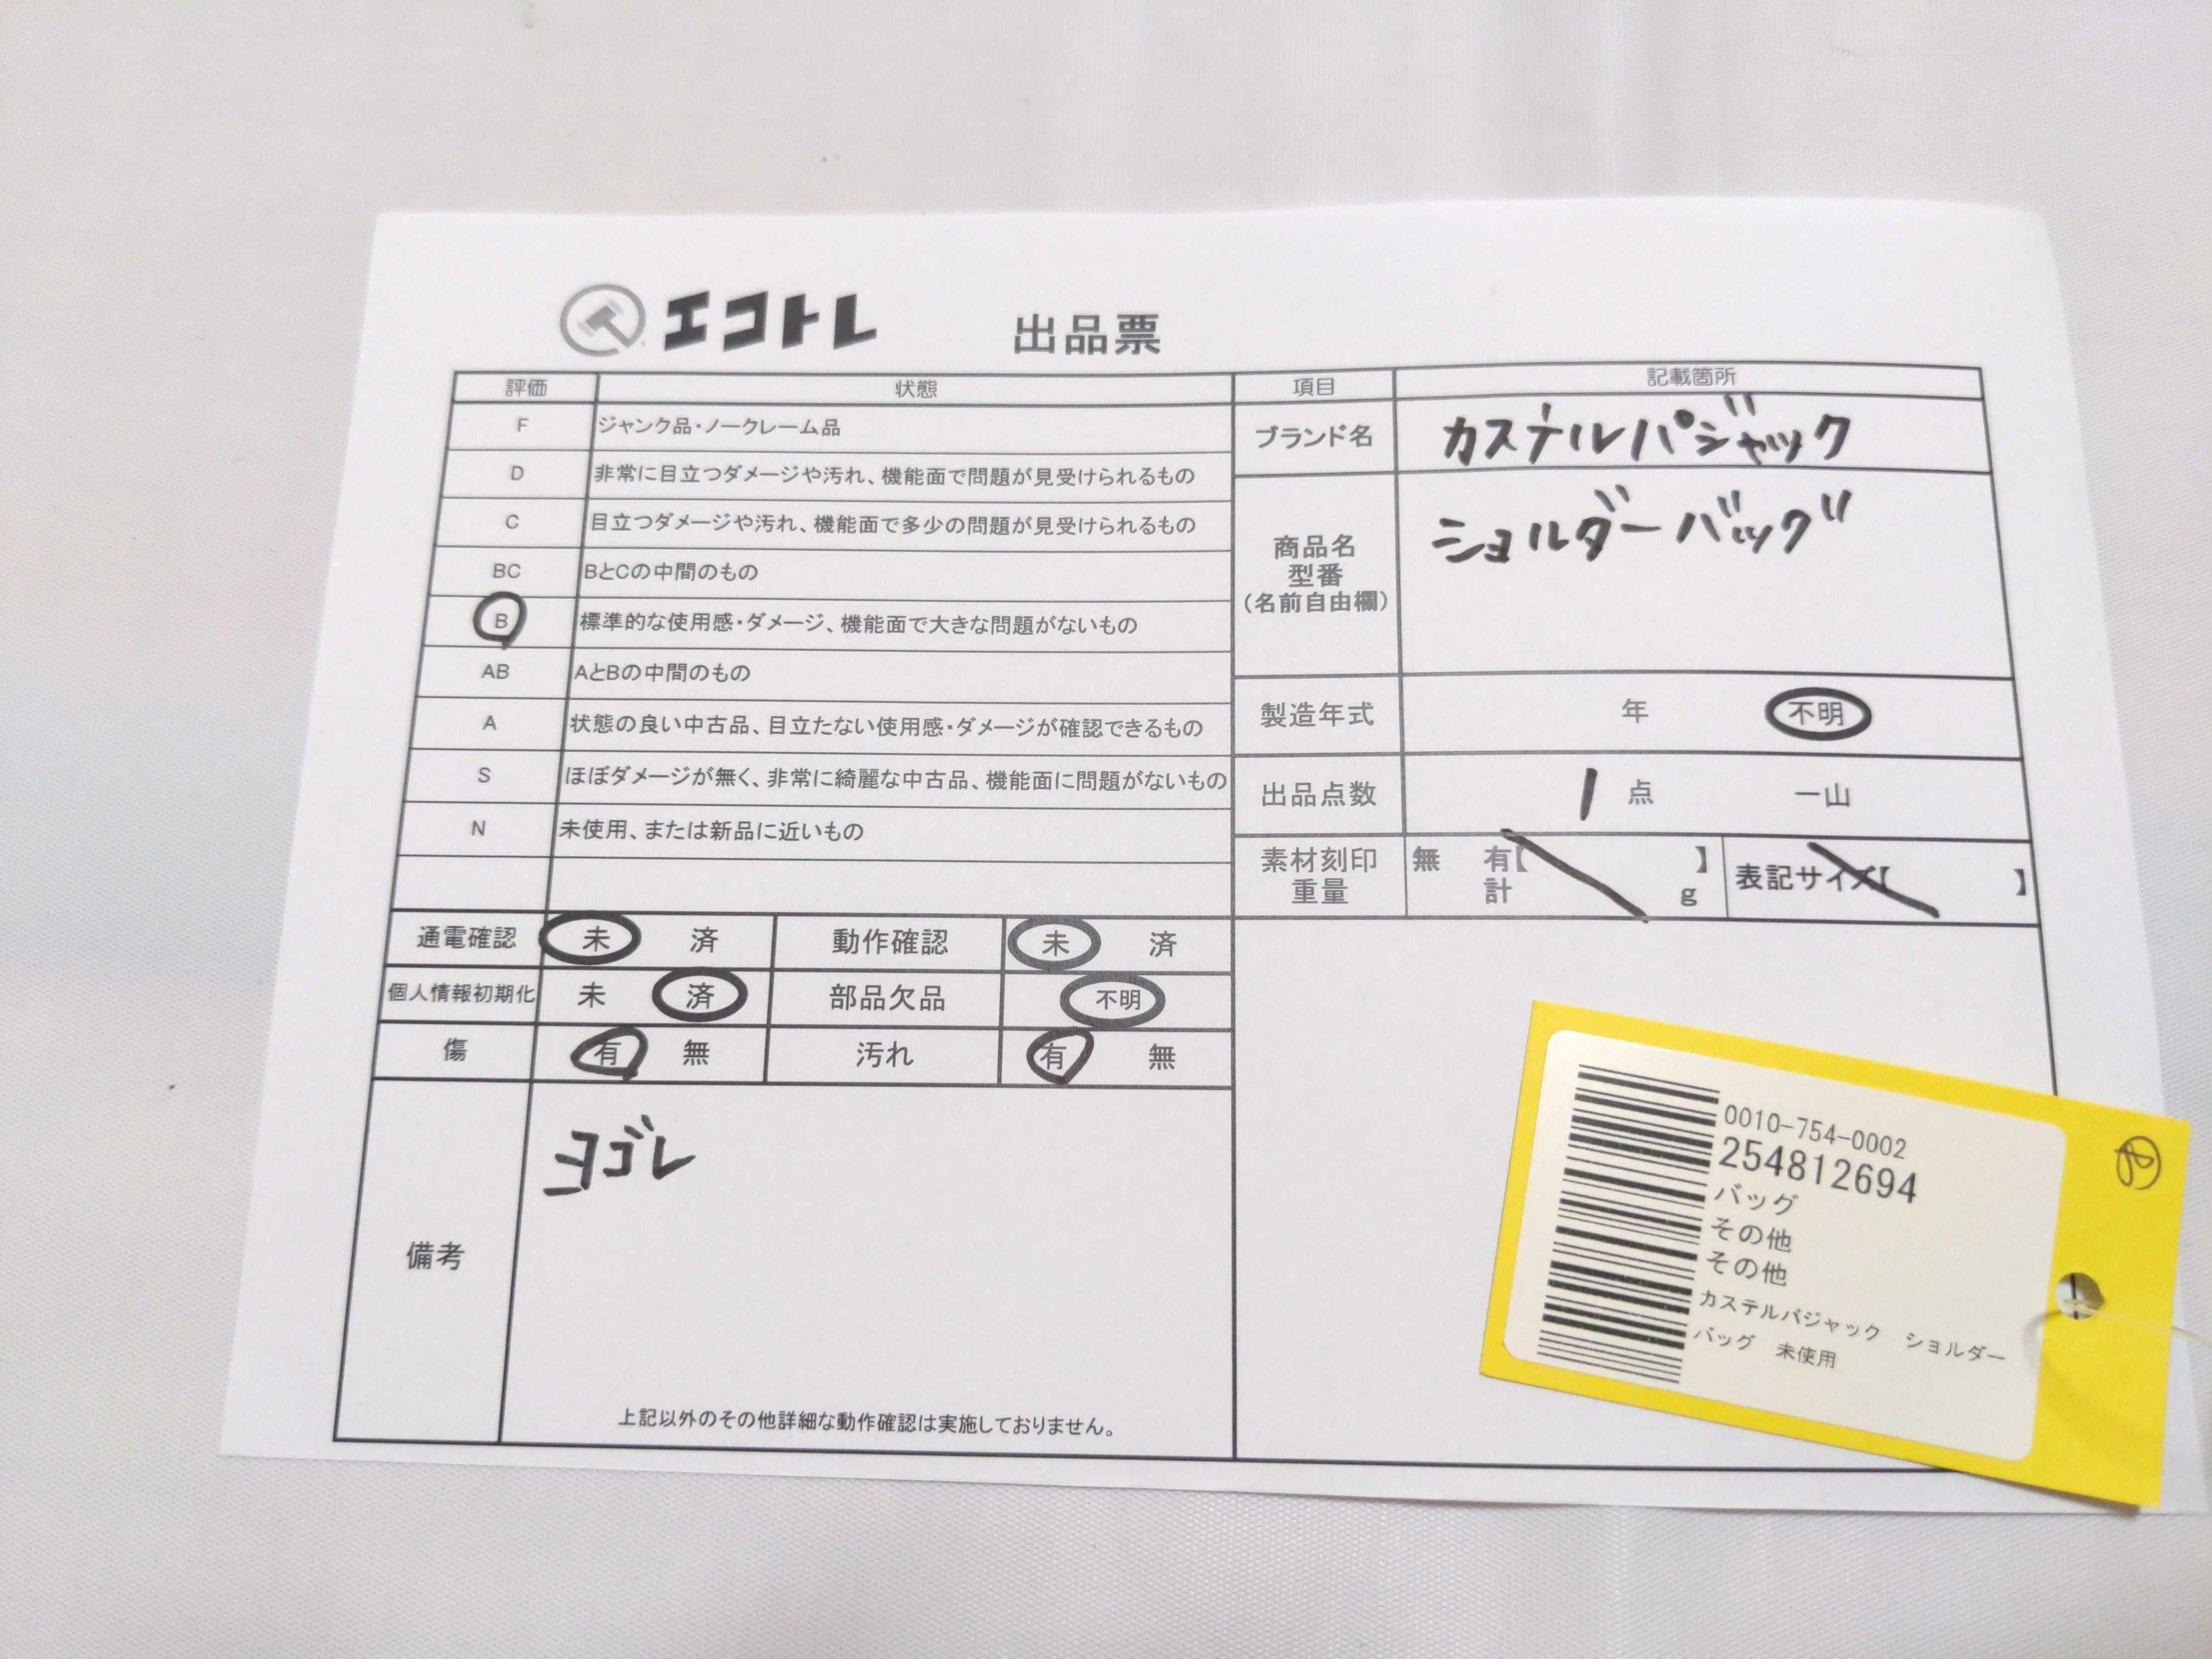 エコトレ 出品票
評価 状態
F ジャンク品・ノークレーム品
D 非常に目立つダメージや汚れ、機能面で問題が見受けられるもの
C 目立つダメージや汚れ、機能面で多少の問題が見受けられるもの
BC BとCの中間のもの
B 標準的な使用感・ダメージ、機能面で大きな問題がないもの
AB AとBの中間のもの
A 状態の良い中古品、目立たない使用感・ダメージが確認できるもの
S ほぼダメージが無く、非常に綺麗な中古品、機能面に問題がないもの
N 未使用、または新品に近いもの
通電確認 未 済 動作確認 未 済
個人情報初期化 未 済 部品欠品 不明
傷 有 無 汚れ 有 無
備考
ヨゴレ
上記以外のその他詳細な動作確認は実施しておりません。
項目 記載箇所
ブランド名 カステルパジャック
商品名
型番
(名前自由欄)
ショルダーバッグ
製造年式 年 不明
出品点数 1 点 一山
素材刻印 無 有【 】
重量 計 g
表記サイズ【 】
0010-754-0002
254812694
バッグ
その他
その他
カステルバジャック ショルダー
バッグ 未使用